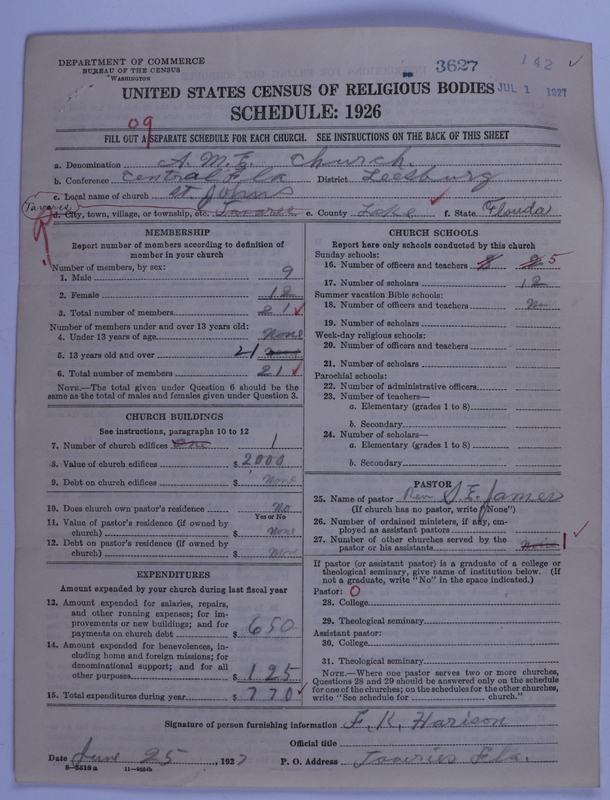 DEPARTMENT OF COMMERCE
BUREAU OF THE CENSUS
WASHINGTON
3627
142 ✓
UNITED STATES CENSUS OF RELIGIOUS BODIES
JUL 1 1927
SCHEDULE: 1926
09
FILL OUT A SEPARATE SCHEDULE FOR EACH CHURCH. SEE INSTRUCTIONS ON THE BACK OF THIS SHEET
a. Denomination A.M.E. Church.
b. Conference Central Fla District Leesburg
c. Local name of church St. Johns
Tavares
d. City, town, village, or township, etc. Tavares e. County Lake f. State Florida
MEMBERSHIP
Report number of members according to definition of member in your church
Number of members, by sex:
1. Male 9
2. Female 12
3. Total number of members 21 ✓
Number of members under and over 13 years old:
4. Under 13 years of age None
5. 13 years old and over 21
6. Total number of members 21 ✓
NOTE.—The total given under Question 6 should be the same as the total of males and females given under Question 3.
CHURCH BUILDINGS
See instructions, paragraphs 10 to 12
7. Number of church edifices One 1
8. Value of church edifices $ 2000
9. Debt on church edifices $ None
10. Does church own pastor's residence No
Yes or No
11. Value of pastor's residence (if owned by church) $ None
12. Debt on pastor's residence (if owned by church) $ None
EXPENDITURES
Amount expended by your church during last fiscal year
13. Amount expended for salaries, repairs, and other running expenses; for improvements or new buildings; and for payments on church debt $ 650
14. Amount expended for benevolences, including home and foreign missions; for denominational support; and for all other purposes $ 125
15. Total expenditures during year $ 770 ✓
CHURCH SCHOOLS
Report here only schools conducted by this church
Sunday schools:
16. Number of officers and teachers 5
17. Number of scholars 12
Summer vacation Bible schools:
18. Number of officers and teachers No
19. Number of scholars
Week-day religious schools:
20. Number of officers and teachers
21. Number of scholars
Parochial schools:
22. Number of administrative officers
23. Number of teachers—
a. Elementary (grades 1 to 8)
b. Secondary
24. Number of scholars—
a. Elementary (grades 1 to 8)
b. Secondary
PASTOR
25. Name of pastor Rev. S. E. James
(If church has no pastor, write "None")
26. Number of ordained ministers, if any, employed as assistant pastors
27. Number of other churches served by the pastor or his assistants None 1 ✓
If pastor (or assistant pastor) is a graduate of a college or theological seminary, give name of institution below. (If not a graduate, write "No" in the space indicated.)
Pastor: O
28. College
29. Theological seminary
Assistant pastor:
30. College
31. Theological seminary
NOTE.—Where one pastor serves two or more churches, Questions 28 and 29 should be answered only on the schedule for one of the churches; on the schedules for the other churches, write "See schedule for church."
Signature of person furnishing information F. K. Harison
Official title
Date June 25, 1927 P. O. Address Taveries Fla.